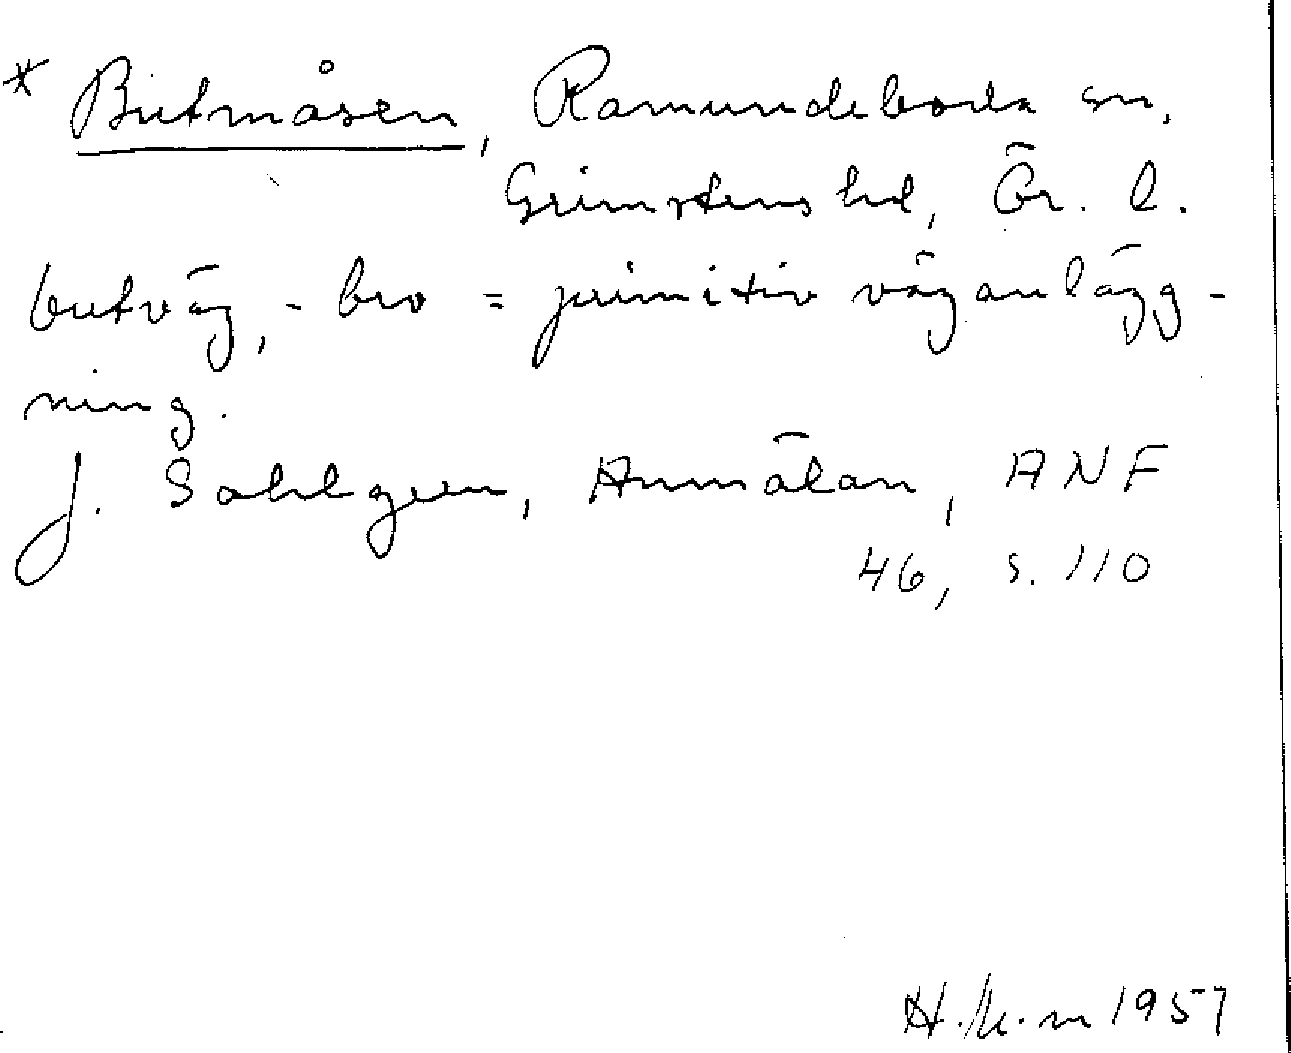 * Butmåsen, Ramundeboda sn,
Grimstens hd, Ör. l.
butväg, -bro = primitiv vägan lägg-
ning.
J. Sahlgren, Anmälan, ANF
46, s. 110
1957